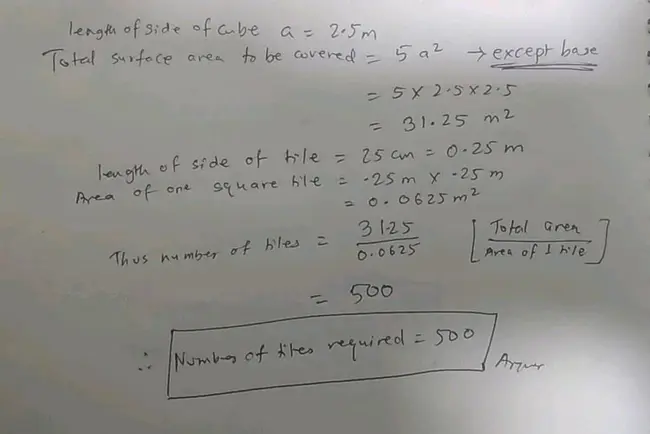 length of side of cube a = 2.5m
Total surface area to be covered = 5a² → except base
= 5 × 2.5 × 2.5
= 31.25 m²
length of side of tile = 25 cm = 0.25 m
Area of one square tile = .25 m × .25 m
= 0.0625 m²
Thus number of tiles = 31.25 / 0.0625 [Total area / Area of 1 tile]
= 500
∴ Number of tiles required = 500 Answer